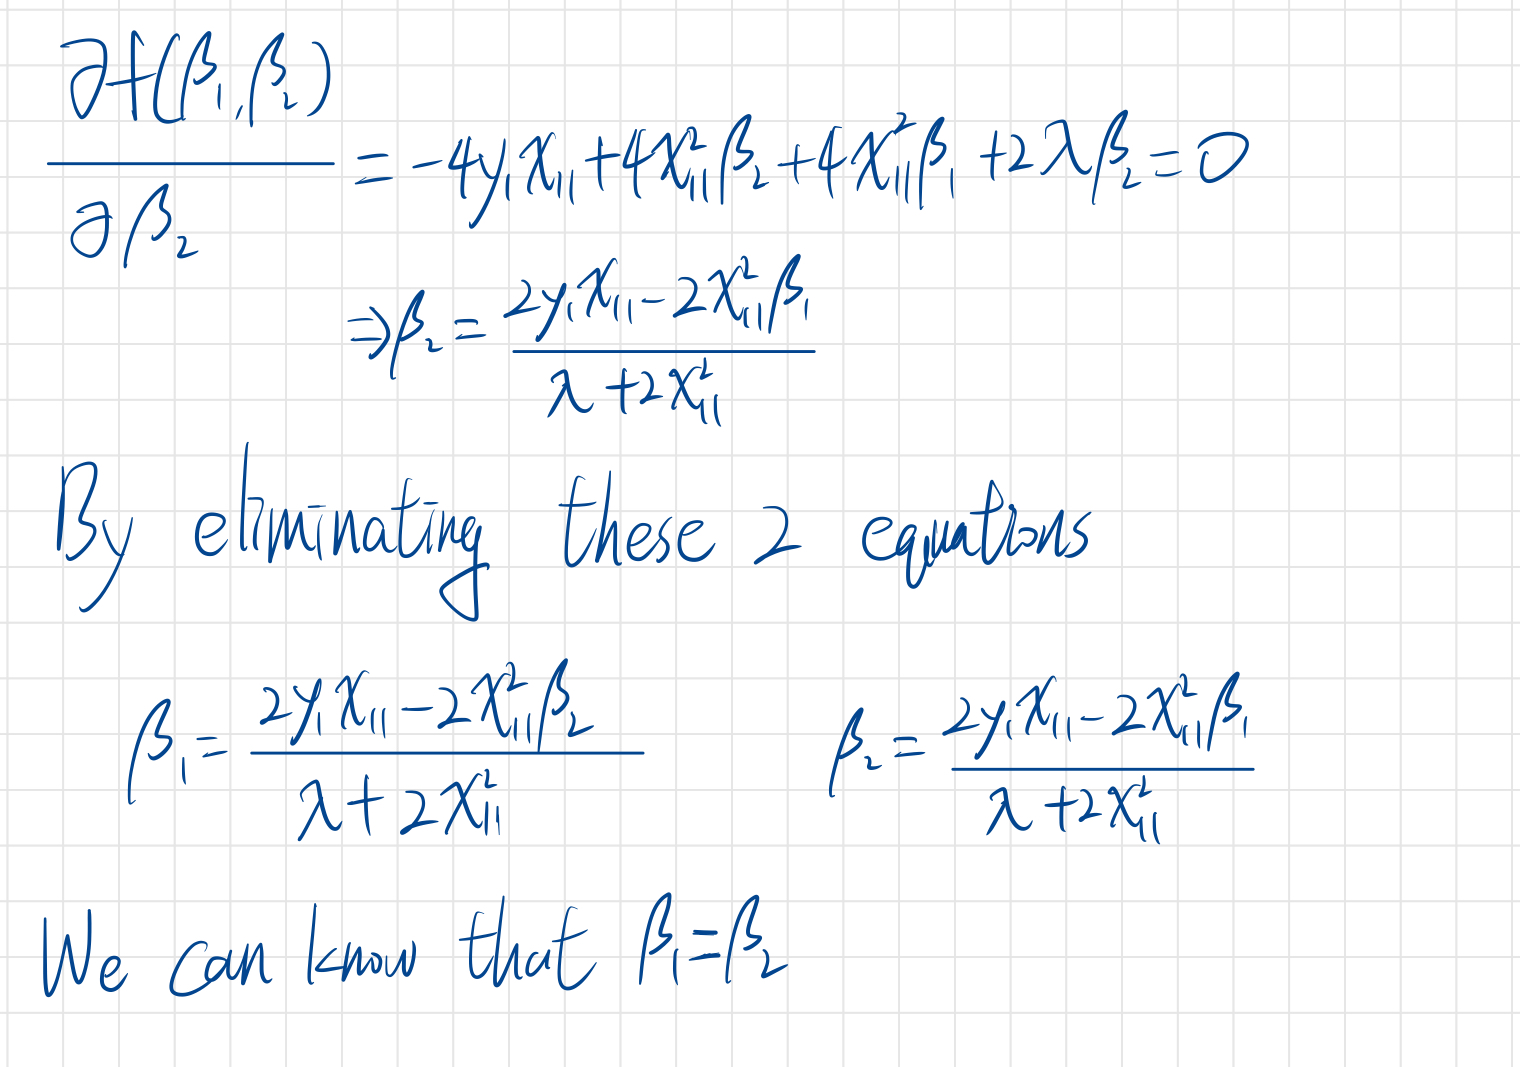 ∂f(β₁,β₂)/∂β₂ = -4y₁x₁₁+4x₁₁²β₂+4x₁₁²β₁+2λβ₂=0
⇒β₂ = (2y₁x₁₁-2x₁₁²β₁)/(λ+2x₁₁²)
By eliminating these 2 equations
β₁ = (2y₁x₁₁-2x₁₁²β₂)/(λ+2x₁₁²) β₂ = (2y₁x₁₁-2x₁₁²β₁)/(λ+2x₁₁²)
We can know that β₁=β₂